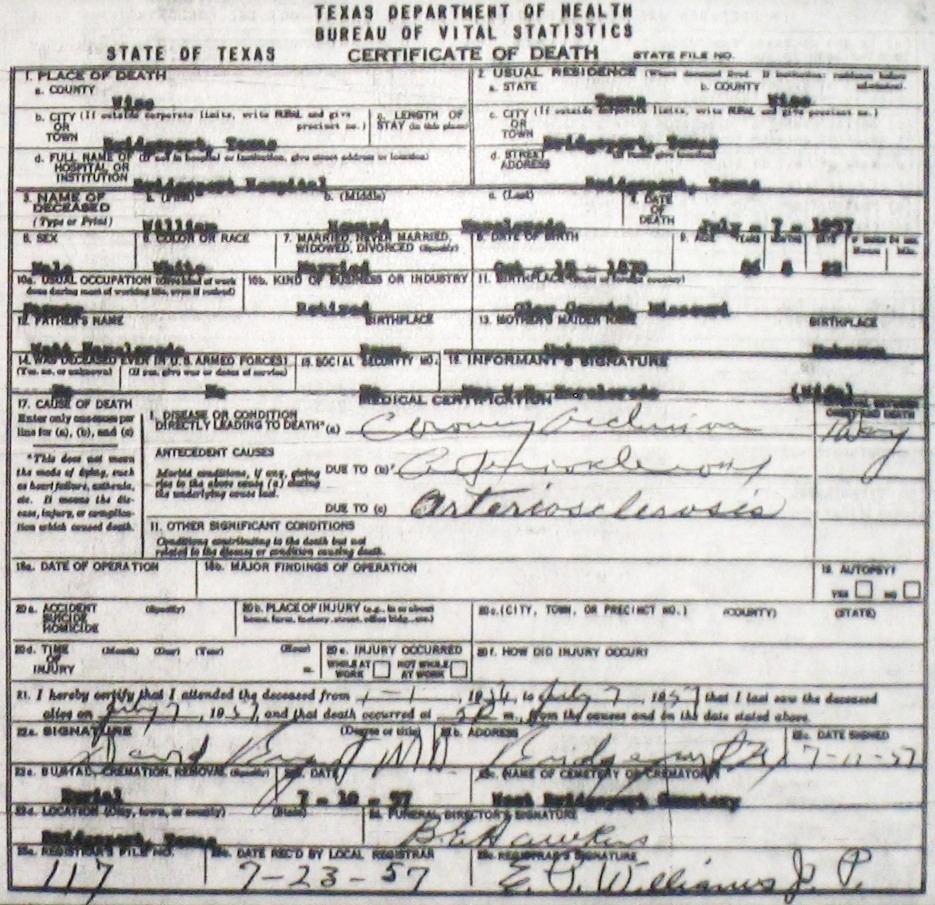 TEXAS DEPARTMENT OF HEALTH
BUREAU OF VITAL STATISTICS
STATE OF TEXAS CERTIFICATE OF DEATH STATE FILE NO.
1. PLACE OF DEATH 2. USUAL RESIDENCE (Where deceased lived. If institution: residence before admission).
a. COUNTY a. STATE b. COUNTY
Wise Texas Wise
b. CITY (If outside corporate limits, write RURAL and give precinct no.) c. LENGTH OF STAY (in this place) c. CITY (If outside corporate limits, write RURAL and give precinct no.)
OR TOWN OR TOWN
Bridgeport, Texas Bridgeport, Texas
d. FULL NAME OF (If not in hospital or institution, give street address or location) d. STREET ADDRESS (If rural give location)
HOSPITAL OR INSTITUTION
Bridgeport Hospital Bridgeport, Texas
3. NAME OF DECEASED a. (First) b. (Middle) c. (Last) 4. DATE OF DEATH
(Type or Print)
William July - 7 - 1957
5. SEX 6. COLOR OR RACE 7. MARRIED, NEVER MARRIED, WIDOWED, DIVORCED (Specify) 8. DATE OF BIRTH 9. AGE YEARS MONTHS DAYS
Male White Married Oct - 15 -
10a. USUAL OCCUPATION (Give kind of work done during most of working life, even if retired) 10b. KIND OF BUSINESS OR INDUSTRY 11. BIRTHPLACE (State or foreign country)
Farmer Retired Missouri
12. FATHER'S NAME BIRTHPLACE 13. MOTHER'S MAIDEN NAME BIRTHPLACE
Unknown
14. WAS DECEASED EVER IN U.S. ARMED FORCES? 15. SOCIAL SECURITY NO. 16. INFORMANT'S SIGNATURE
(Yes, no, or unknown) (If yes, give war or dates of service)
No No No (Wife)
17. CAUSE OF DEATH MEDICAL CERTIFICATION
Enter only one cause per line for (a), (b), and (c) I. DISEASE OR CONDITION DIRECTLY LEADING TO DEATH* (a) Coronary occlusion
*This does not mean the mode of dying, such as heart failure, asthenia, etc. It means the disease, injury, or complication which caused death.
ANTECEDENT CAUSES
Morbid conditions, if any, giving rise to the above cause (a) stating the underlying cause last. DUE TO (b)
DUE TO (c) Arteriosclerosis
II. OTHER SIGNIFICANT CONDITIONS
Conditions contributing to the death but not related to the disease or condition causing death.
18a. DATE OF OPERATION 18b. MAJOR FINDINGS OF OPERATION 19. AUTOPSY?
YES NO
20a. ACCIDENT SUICIDE HOMICIDE (Specify) 20b. PLACE OF INJURY (e.g., in or about home, farm, factory, street, office bldg., etc.) 20c. (CITY, TOWN, OR PRECINCT NO.) (COUNTY) (STATE)
20d. TIME OF INJURY (Month) (Day) (Year) (Hour) m. 20e. INJURY OCCURRED WHILE AT WORK NOT WHILE AT WORK 20f. HOW DID INJURY OCCUR?
21. I hereby certify that I attended the deceased from 1-1, 1956, to July 7, 1957 that I last saw the deceased
alive on July 7, 1957, and that death occurred at m., from the causes and on the date stated above.
22a. SIGNATURE (Degree or title) 22b. ADDRESS 22c. DATE SIGNED
David M.D. Bridgeport 7-11-57
23a. BURIAL, CREMATION, REMOVAL (Specify) 23b. DATE 23c. NAME OF CEMETERY OR CREMATORY
Burial 7 - 10 - 57 West Bridgeport Cemetery
23d. LOCATION (City, town, or county) (State) 24. FUNERAL DIRECTOR'S SIGNATURE
Bridgeport, Texas B.E. Hawkins
25a. REGISTRAR'S FILE NO. 25b. DATE REC'D BY LOCAL REGISTRAR 25c. REGISTRAR'S SIGNATURE
117 7-23-57 Williams J. P.